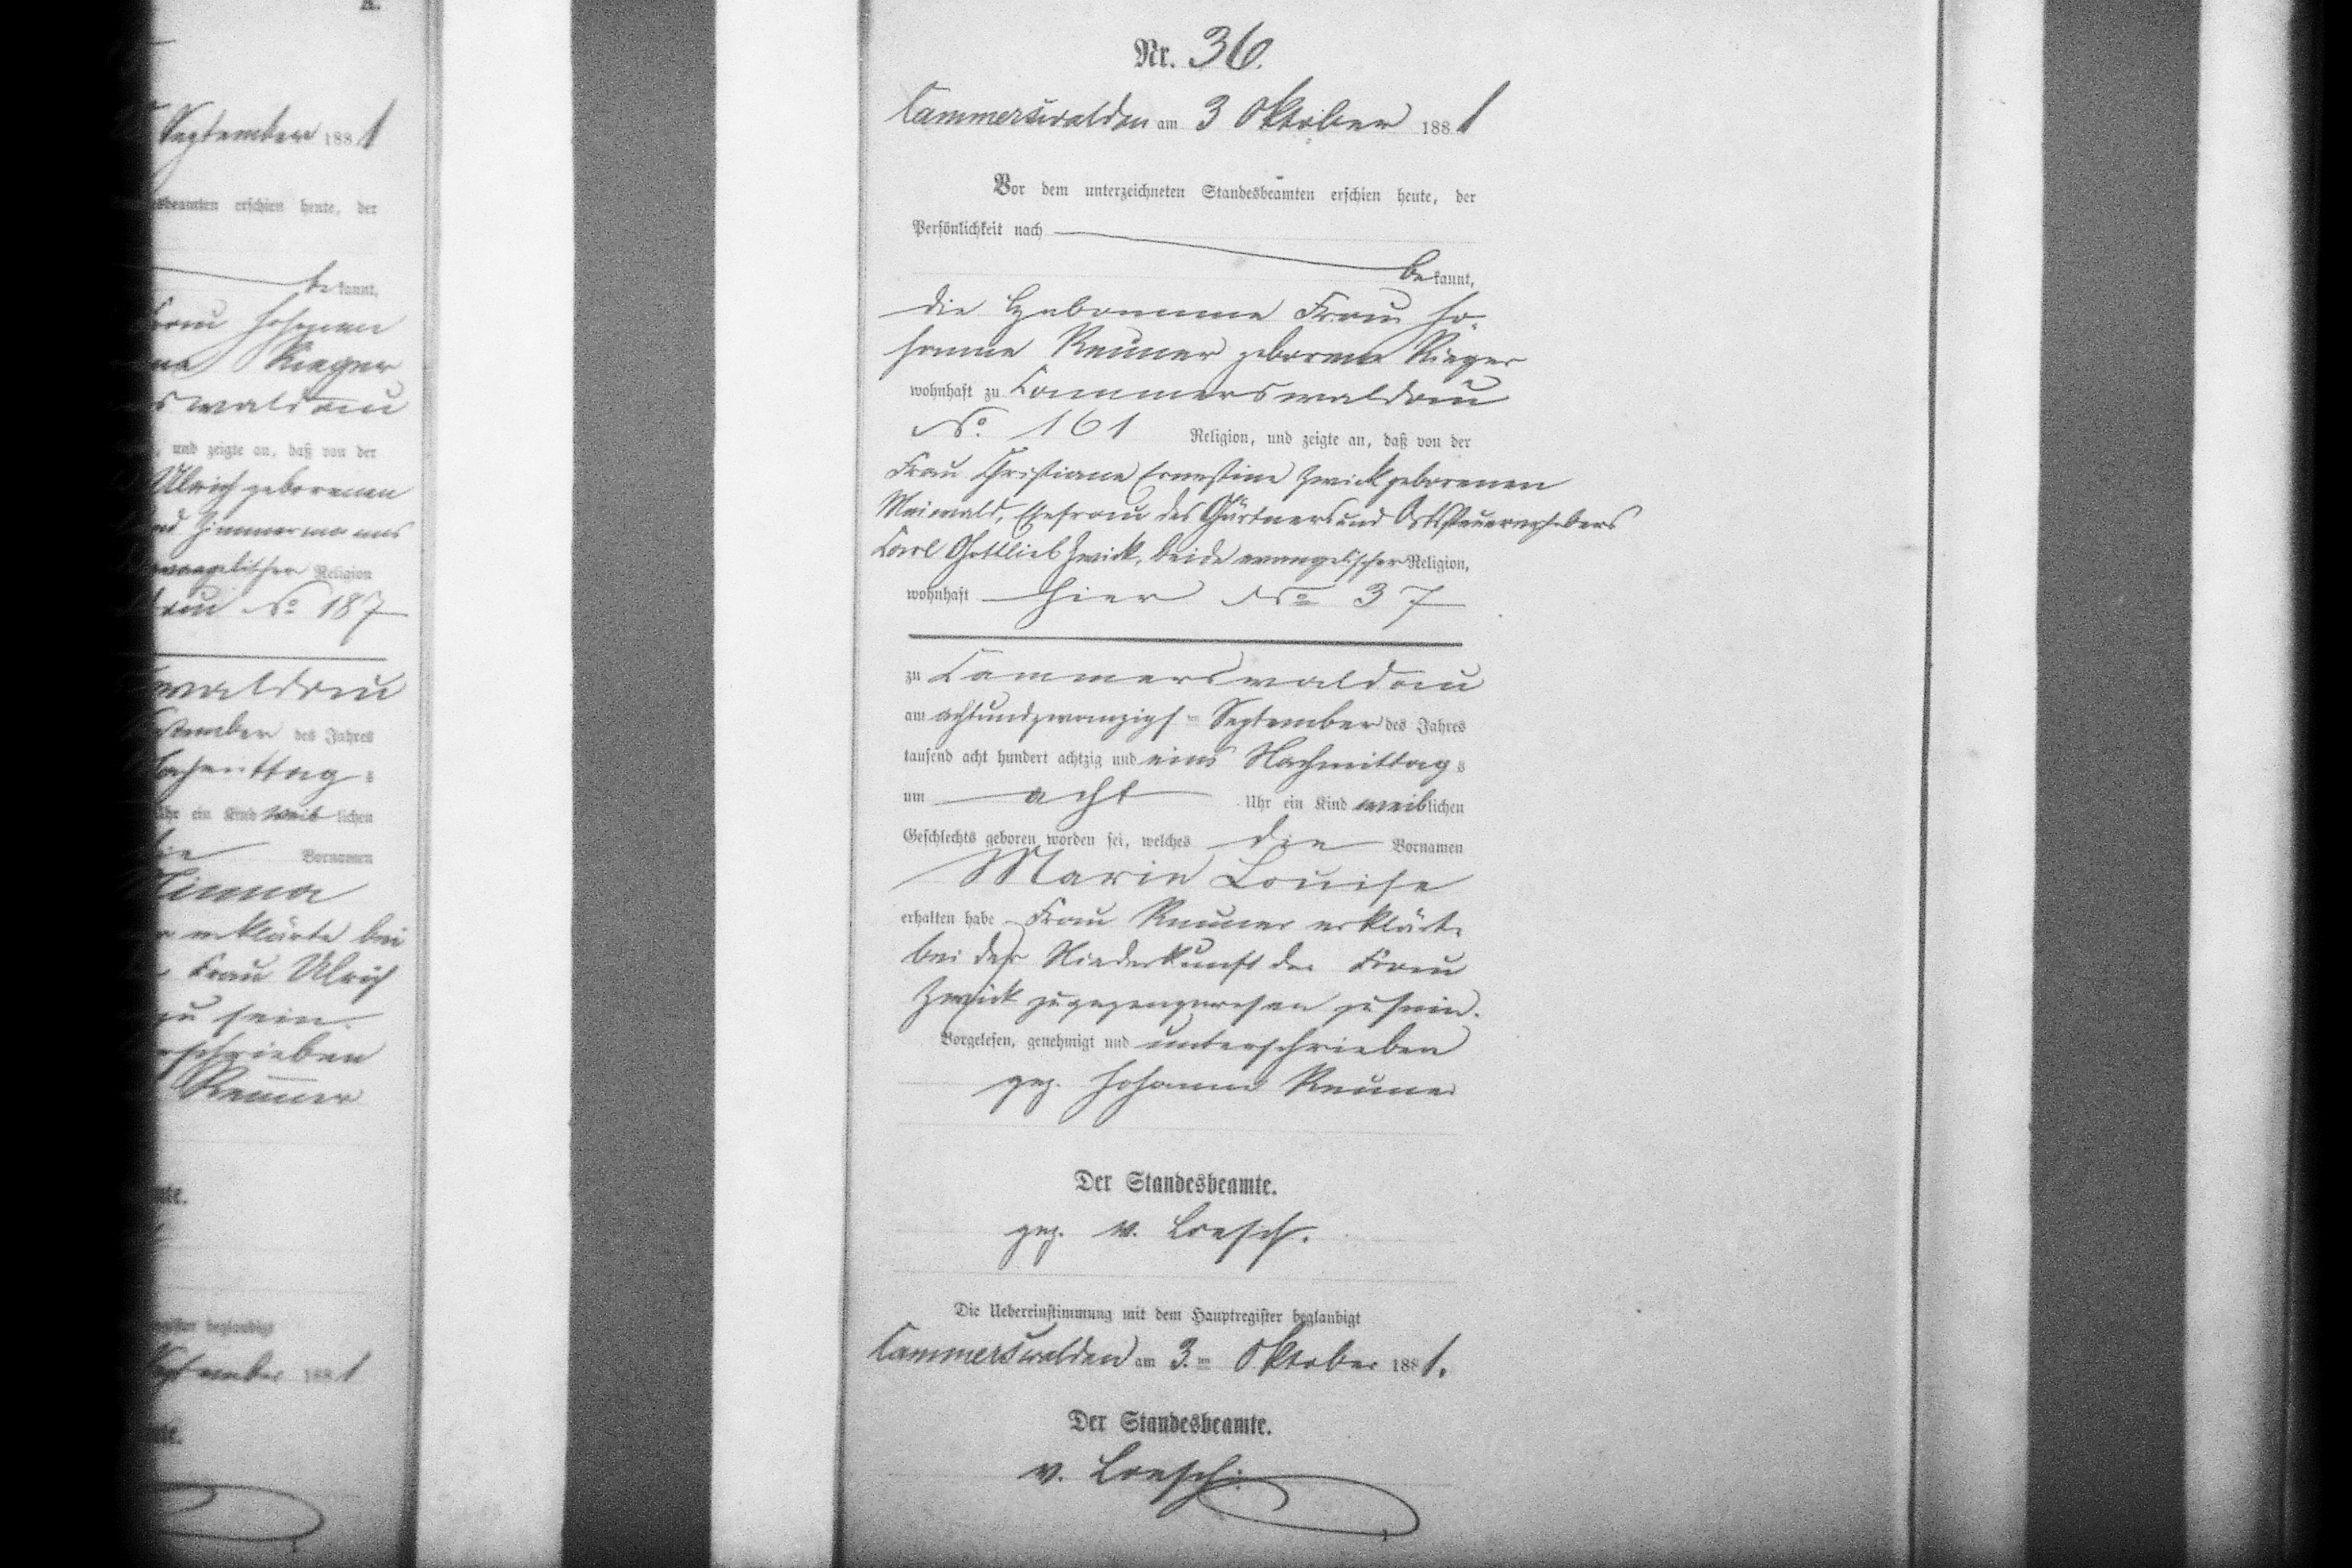 September 1881
beamten erschien heute, der
be kannt,
Frau Johanne
Rieger
swaldau
, und zeigte an, daß von der
Ulrich geborenen
Zimmermanns
evangelischer Religion
No 187
waldau
des Jahres
Nachmittag s
Uhr ein Kind weib lichen
die Vornamen
erklärte bei
Frau Ulrich
zu sein.
Renner
register beglaubigt
September 1881
Nr. 36.
Cammerswaldau am 3 Oktober 1881
Vor dem unterzeichneten Standesbeamten erschien heute, der
Persönlichkeit nach
be kannt,
die Hebamme Frau Jo-
hanne Renner geborene Rieger
wohnhaft zu Cammerswaldau
No. 161 Religion, und zeigte an, daß von der
Frau Christiane Ernestine Zwick geborenen
Maiwald, Ehefrau des Gärtners und Ortssteuererhebers
Carl Gottlieb Zwick, beide evangelischer Religion,
wohnhaft hier No 37
zu Cammerswaldau
am achtundzwanzigsten September des Jahres
tausend acht hundert achtzig und eins Nachmittag s
um acht Uhr ein Kind weiblichen
Geschlechts geboren worden sei, welches die Vornamen
Marie Louise
erhalten habe Frau Renner erklärte
bei der Niederkunft der Frau
Zwick zugegen gewesen zu sein.
Vorgelesen, genehmigt und unterschrieben
gez. Johanne Renner
Der Standesbeamte.
gez. v. Loesch.
Die Uebereinstimmung mit dem Hauptregister beglaubigt
Cammerswaldau am 3. ten Oktober 1881.
Der Standesbeamte.
v. Loesch.